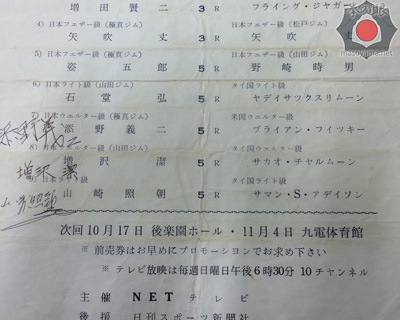 増田賢二 3R フライング・ジャガー
4) 日本フェザー級 (極真ジム) 日本フェザー級 (松戸ジム)
矢吹 丈 3R 矢吹
5) 日本フェザー級 (山田ジム)
姿 五郎 5R 野崎時男
6) 日本ライト級 (極真ジム) タイ国ライト級
石堂 弘 5R ヤデイサックスリムーン
日本ウエルター級 (極真ジム) 米国ウエルター級
添野義二 5R ブライアン・フイツキー
8) 日本ウエルター級 (山田ジム) タイ国ウエルター級
増沢 潔 5R サカオ・チャルムーン
日本ライト級 (極真ジム) タイ国ライト級
山崎照朝 5R サマン・S・アデイソン
添野義二
増沢潔
山崎照朝
次回10月17日 後楽園ホール・11月4日 九電体育館
※ 前売券はお早めにプロモーションでお求め下さい
※ テレビ放映は毎週日曜日午後6時30分 10チャンネル
主催 NETテレビ
後援 日刊スポーツ新聞社